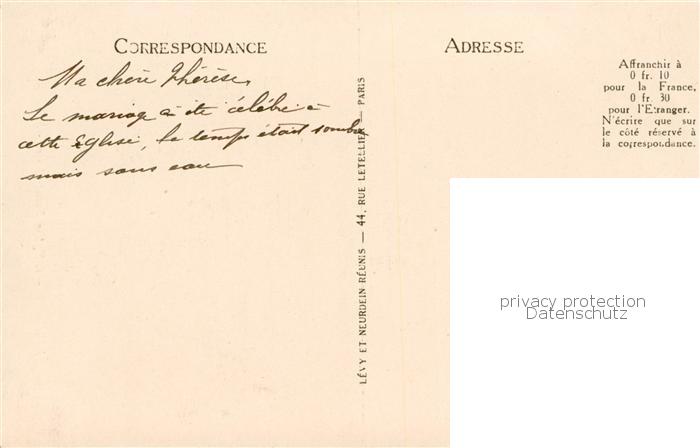 CORRESPONDANCE
Ma chère Thérèse,
Le mariage a été célébré à
cette Eglise, le temps était sombre
mais sans eau
LÉVY ET NEURDEIN RÉUNIS — 44, RUE LETELLIER — PARIS
ADRESSE
Affranchir à
0 fr. 10
pour la France,
0 fr. 30
pour l'Etranger.
N'écrire que sur
le côté réservé à
la correspondance.
privacy protection
Datenschutz